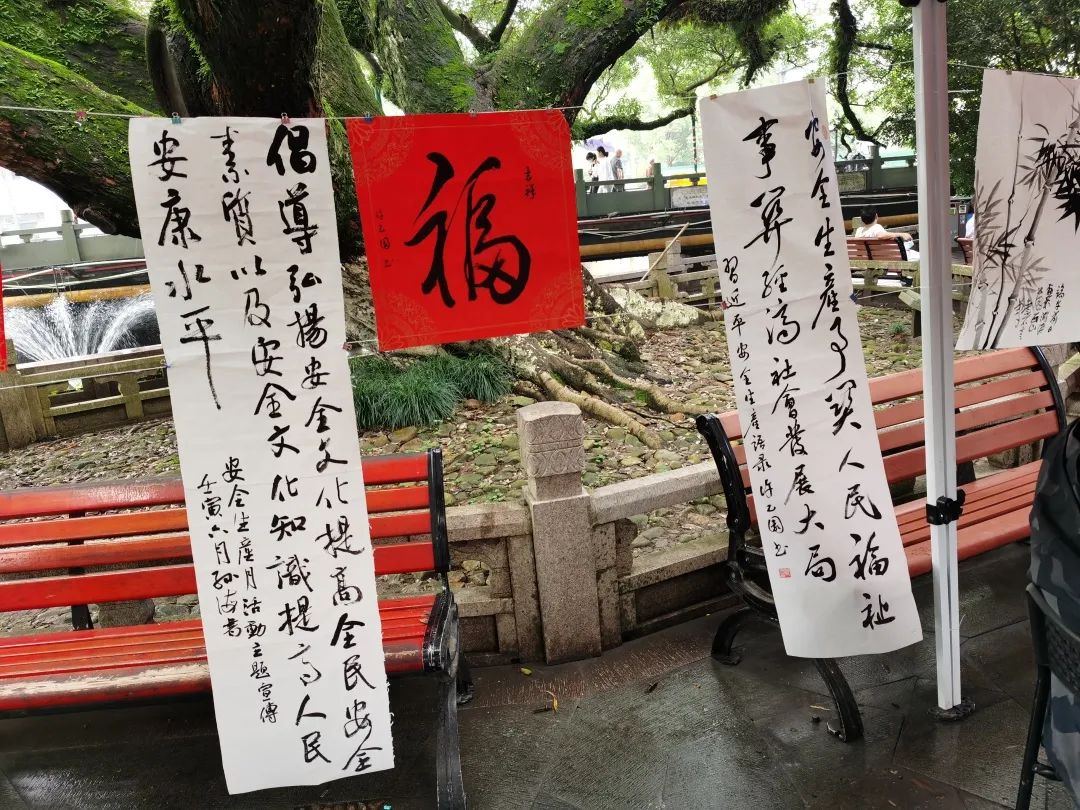 倡導弘揚安全文化提高全民安全
素質以及安全文化知識提高人民
安康水平
安全生產月活動主題宣傳
壬寅六月孫海書
吉祥
福
安全生產事關人民福祉
事關經濟社會發展大局
習近平安全生產語录